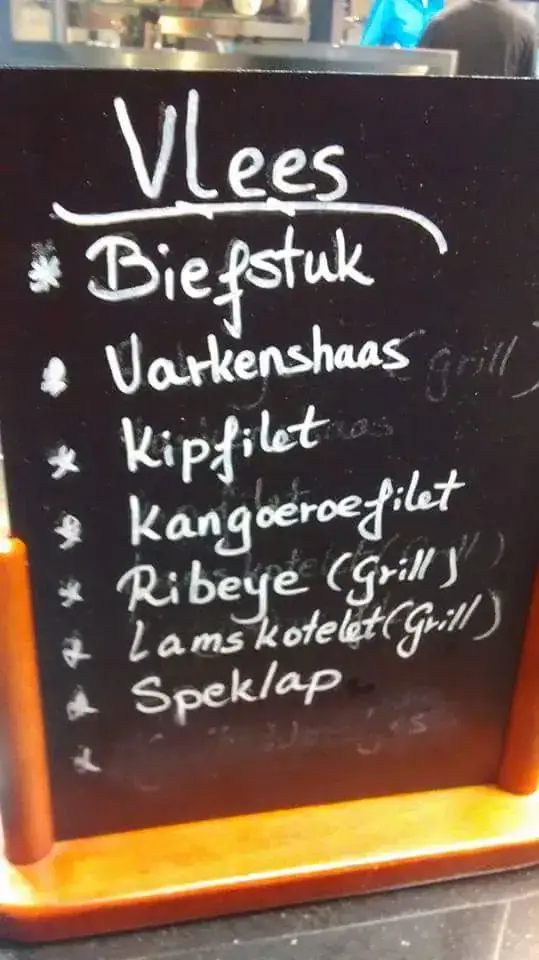 Vlees
* Biefstuk
* Varkenshaas
* Kipfilet
* Kangoeroefilet
* Ribeye (Grill)
* Lamskotelet (Grill)
* Speklap
*